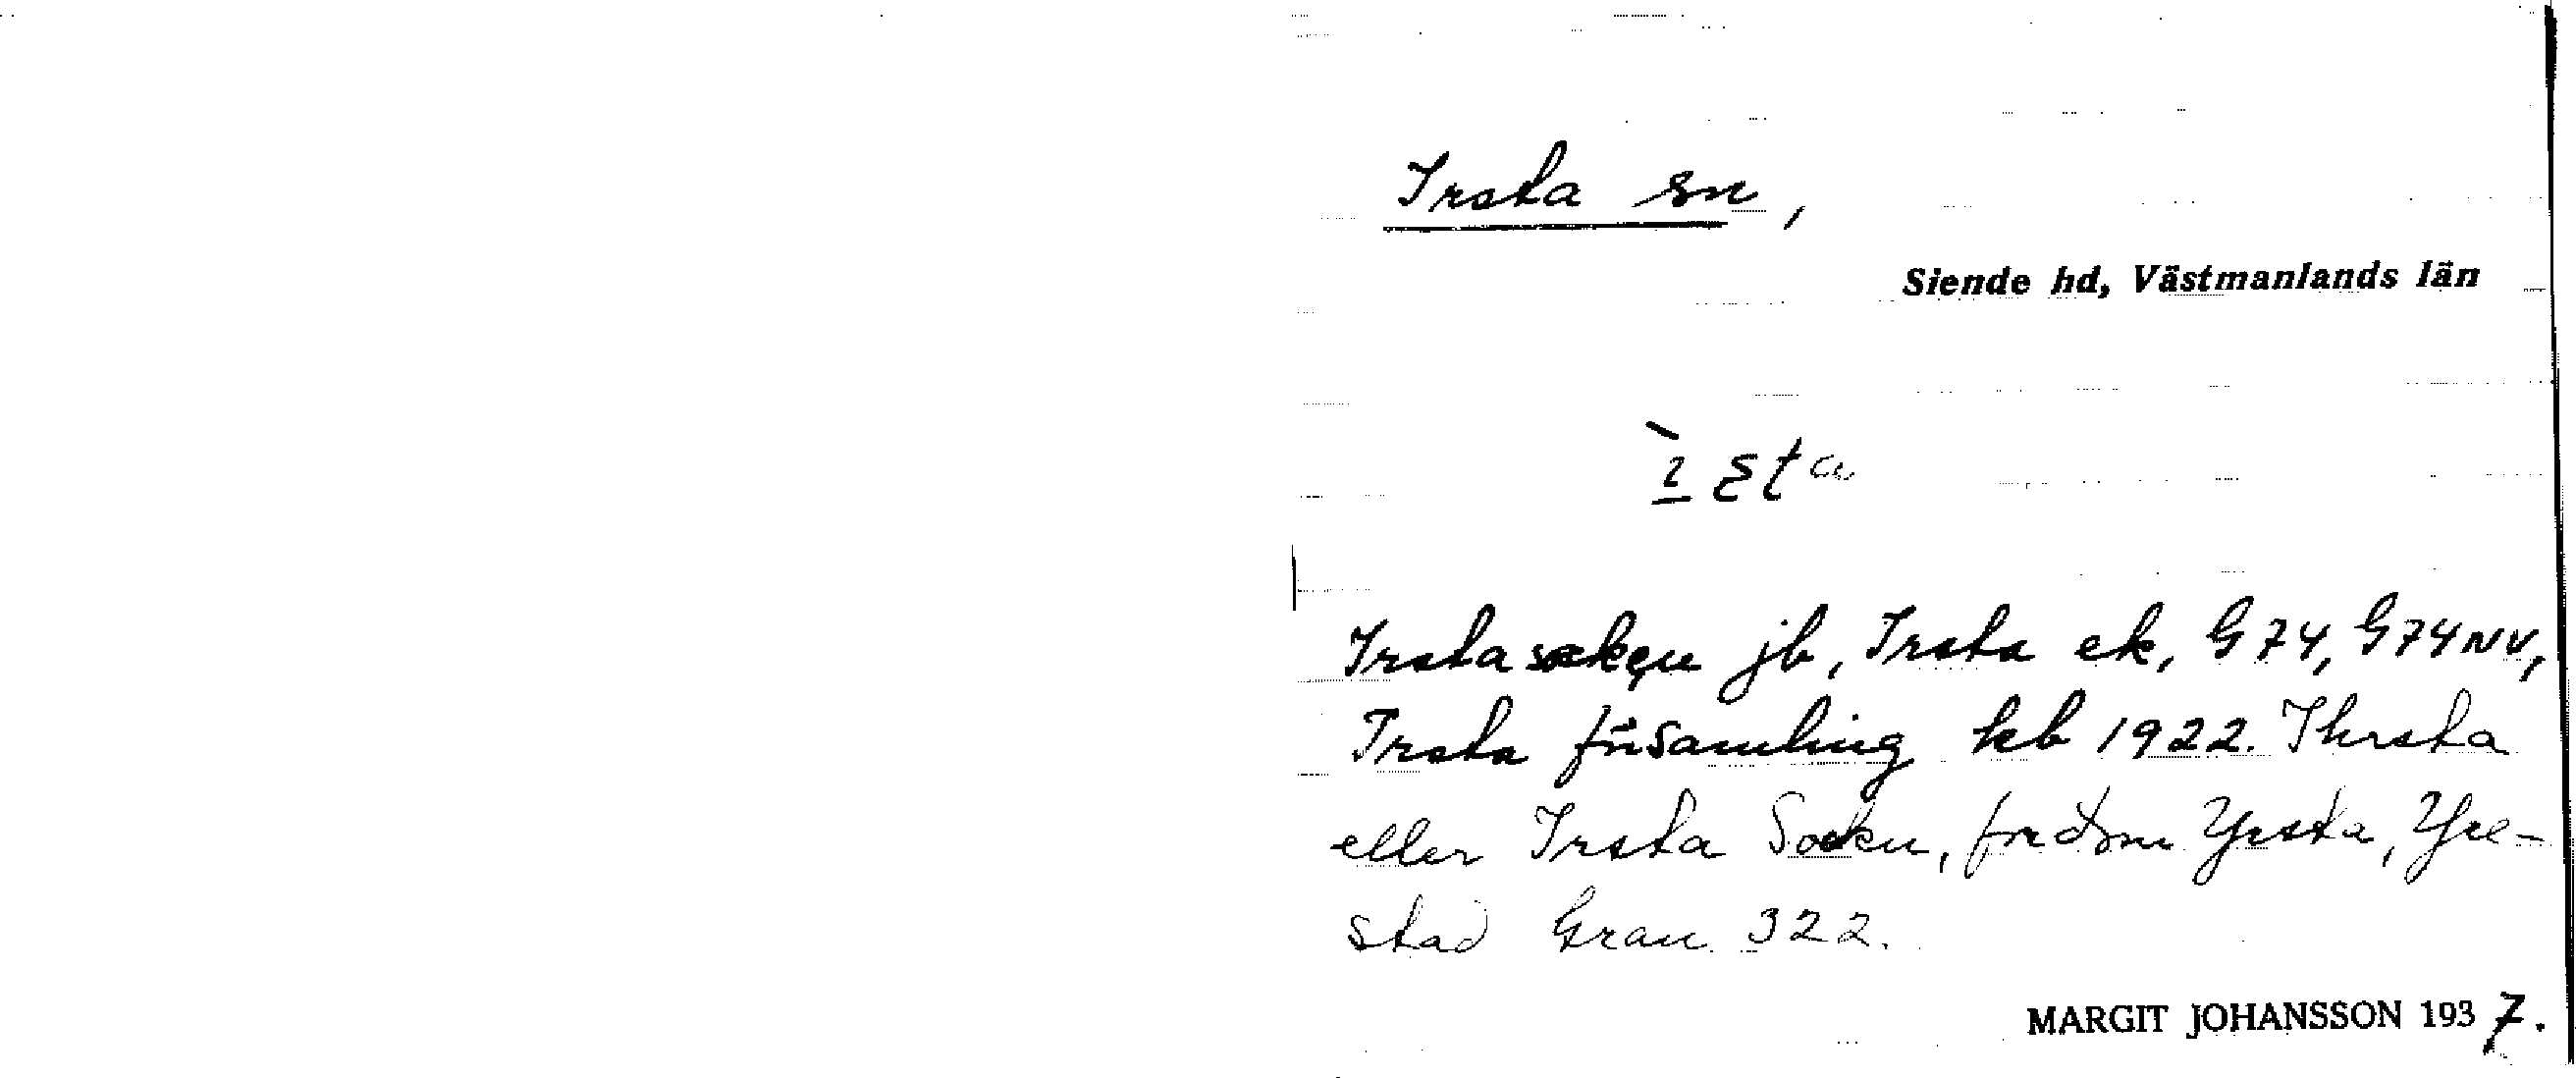 Irsta sn,
Siende hd, Västmanlands län
Irsta socken jb, Irsta ek, G74, G74NV,
Irsta församling kb 1922. Ihrsta
eller Irsta Socken, fordom Yrsta, Yre-
stad Grau 322.
MARGIT JOHANSSON 1937.